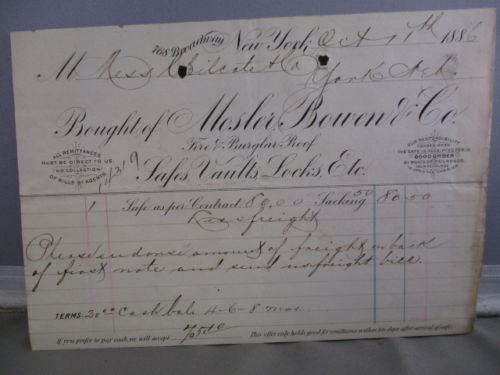 768 Broadway New York Oct 11th 1886
M Mess Wilcote & Co
York Neb
Bought of Mosler, Bowen & Co.
Fire & Burglar Proof
Safes, Vaults, Locks, Etc.
ALL REMITTANCES
MUST BE DIRECT TO US.
NO COLLECTION
OF BILLS BY AGENTS.
OUR RESPONSIBILITY
CEASES WHEN
THE SAFE IS RECEIPTED FOR IN
GOOD ORDER
1 Safe as per Contract 80.00 Sacking 50 80.50
Less freight
Please endorse amount of freight on back
of first note and send us freight bill.
TERMS: 20 00 Cash bal. 4-6-8 mos
If you prefer to pay cash, we will accept
This offer only holds good for remittance within ten days after arrival of safe.